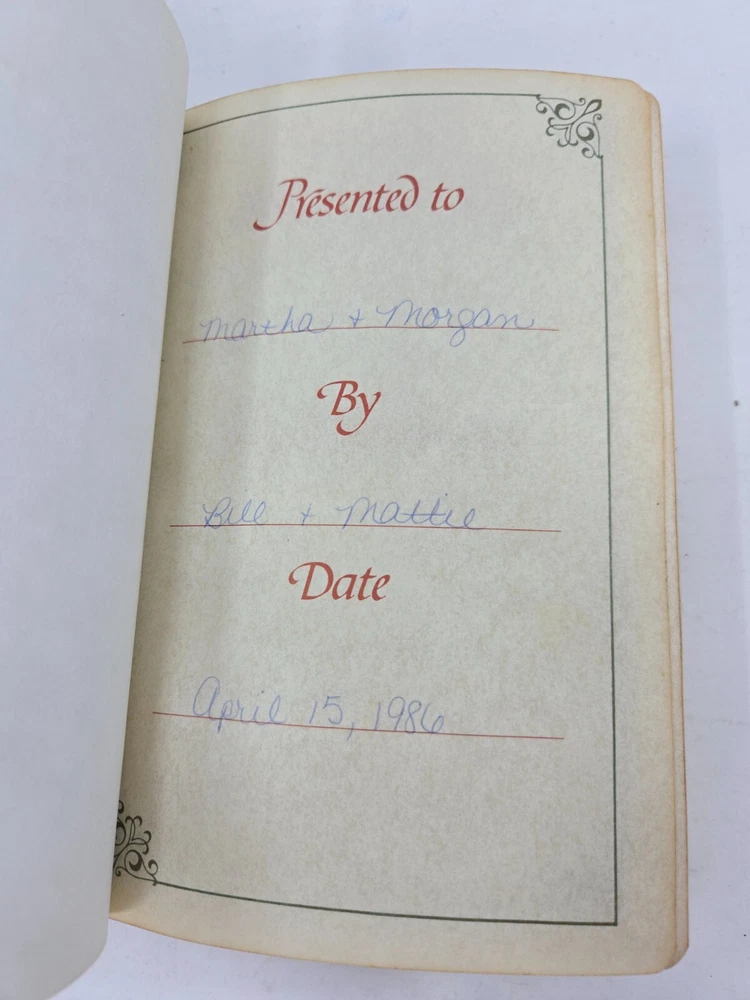 Presented to
Martha + Morgan
By
Bill + Mattie
Date
April 15, 1986